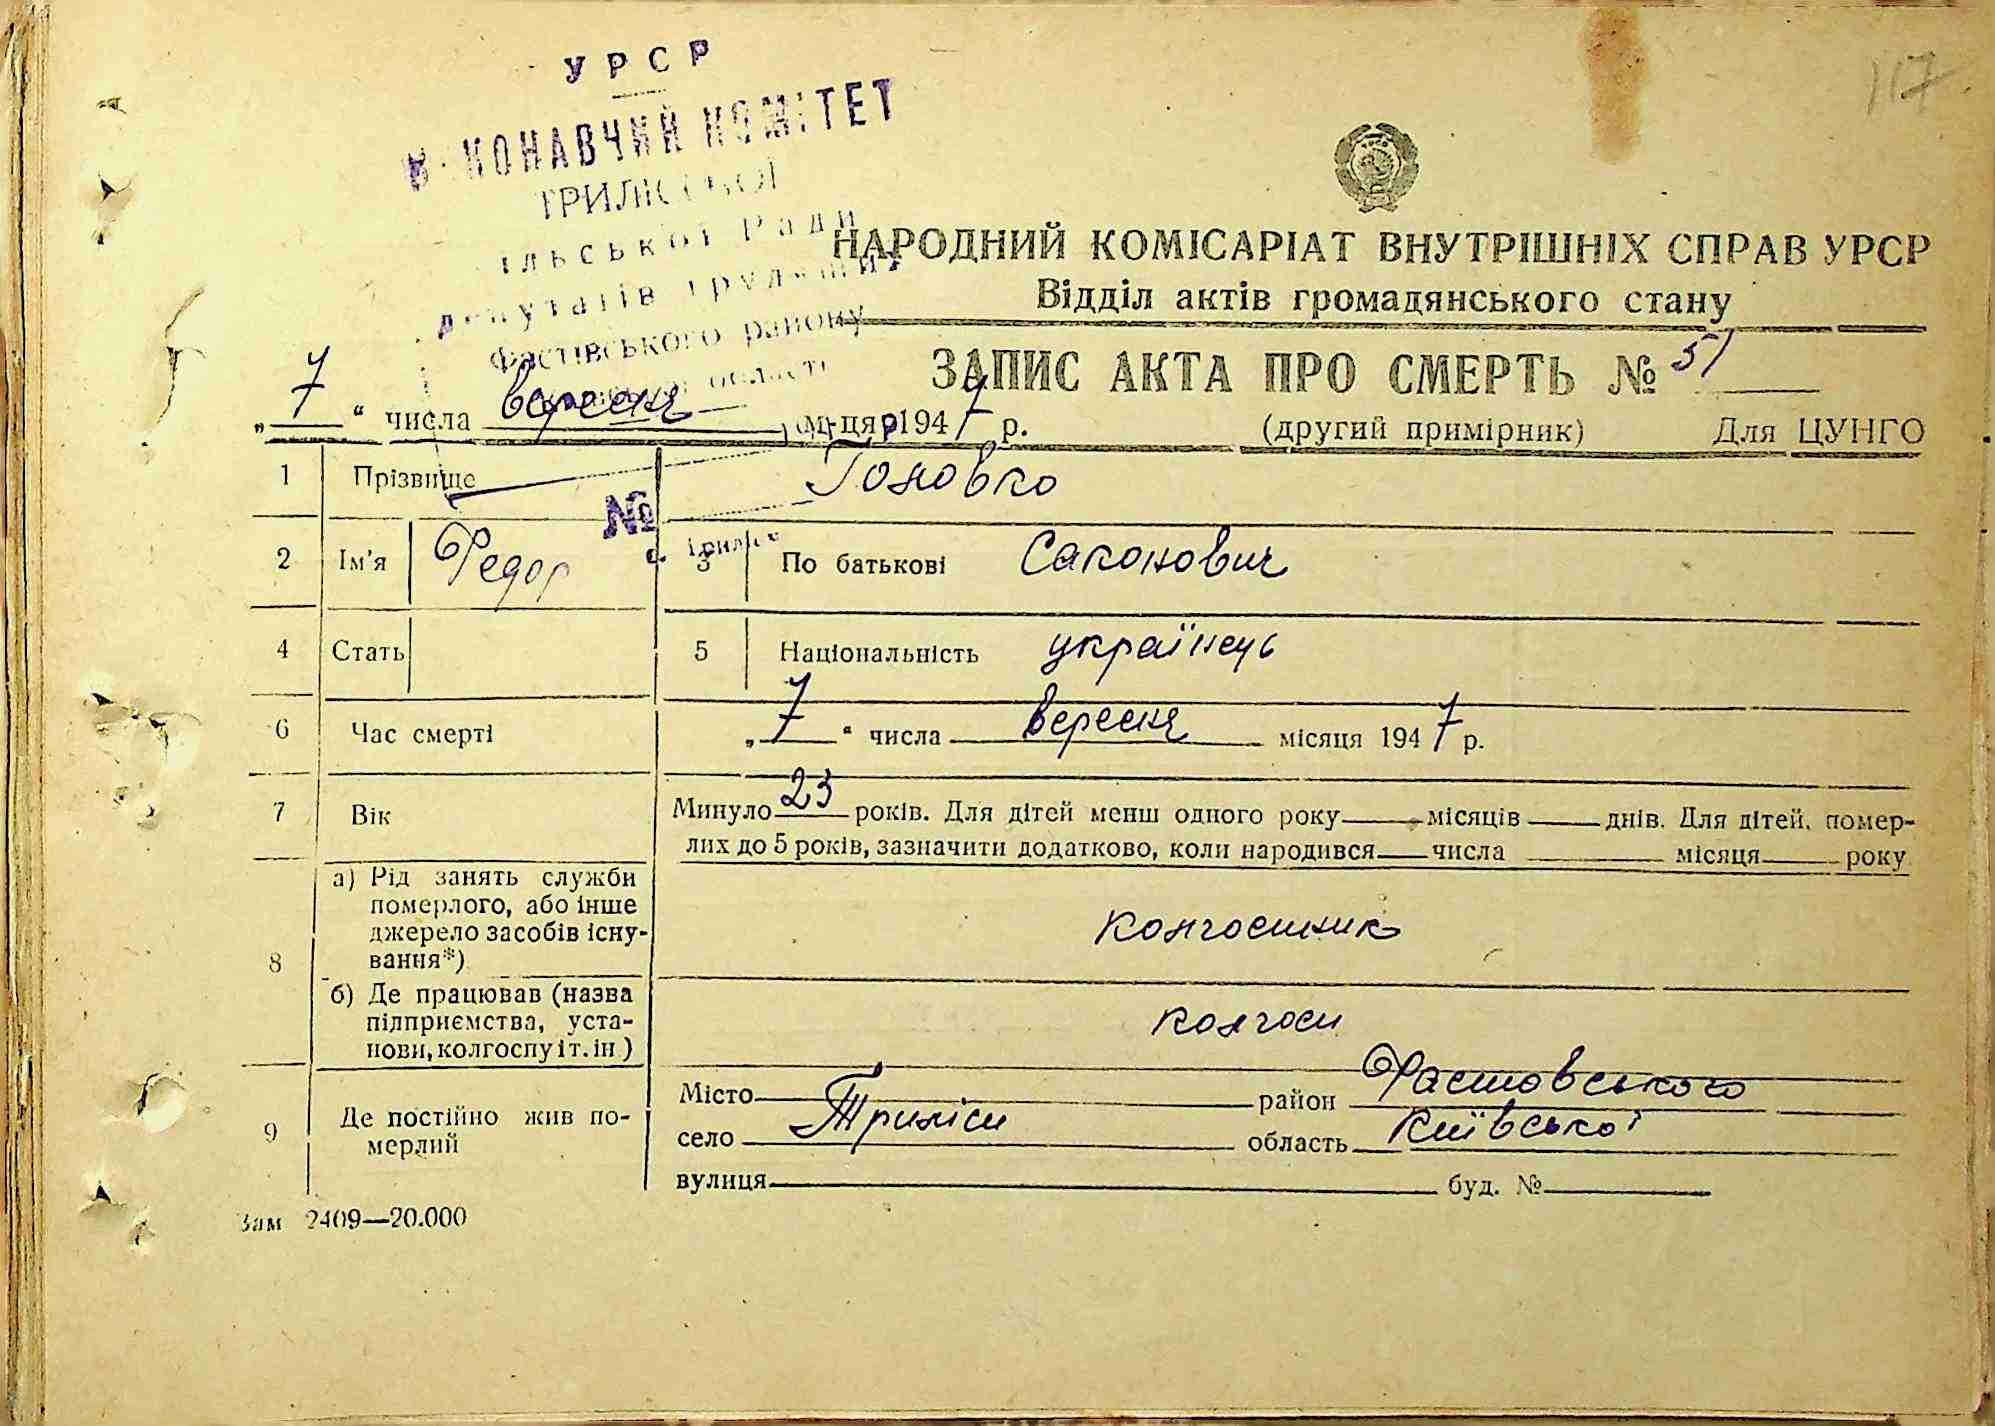 117
УРСР
ВИКОНАВЧИЙ КОМІТЕТ
ТРИЛІСЬКОЇ
сільської Ради
депутатів трудящих
Фастівського району
області
НАРОДНИЙ КОМІСАРІАТ ВНУТРІШНІХ СПРАВ УРСР
Відділ актів громадянського стану
ЗАПИС АКТА ПРО СМЕРТЬ № 51
„ 7 “ числа вересня м-ця 1947 р.
(другий примірник) Для ЦУНГО
1 Прізвище Головко
№
2 Ім'я Федор 3 По батькові Саконович
4 Стать 5 Національність українець
6 Час смерті „ 7 “ числа вересня місяця 1947 р.
7 Вік Минуло 23 років. Для дітей менш одного року місяців днів. Для дітей, помер-
лих до 5 років, зазначити додатково, коли народився числа місяця року
8 а) Рід занять служби
померлого, або інше
джерело засобів існу-
вання*)
колгоспник
б) Де працював (назва
підприємства, уста-
нови, колгоспу і т. ін )
колгосп
9 Де постійно жив по-
мерлий
Місто район Фастовського
село Триліси область Київської
вулиця буд. №
Зам 2409—20.000